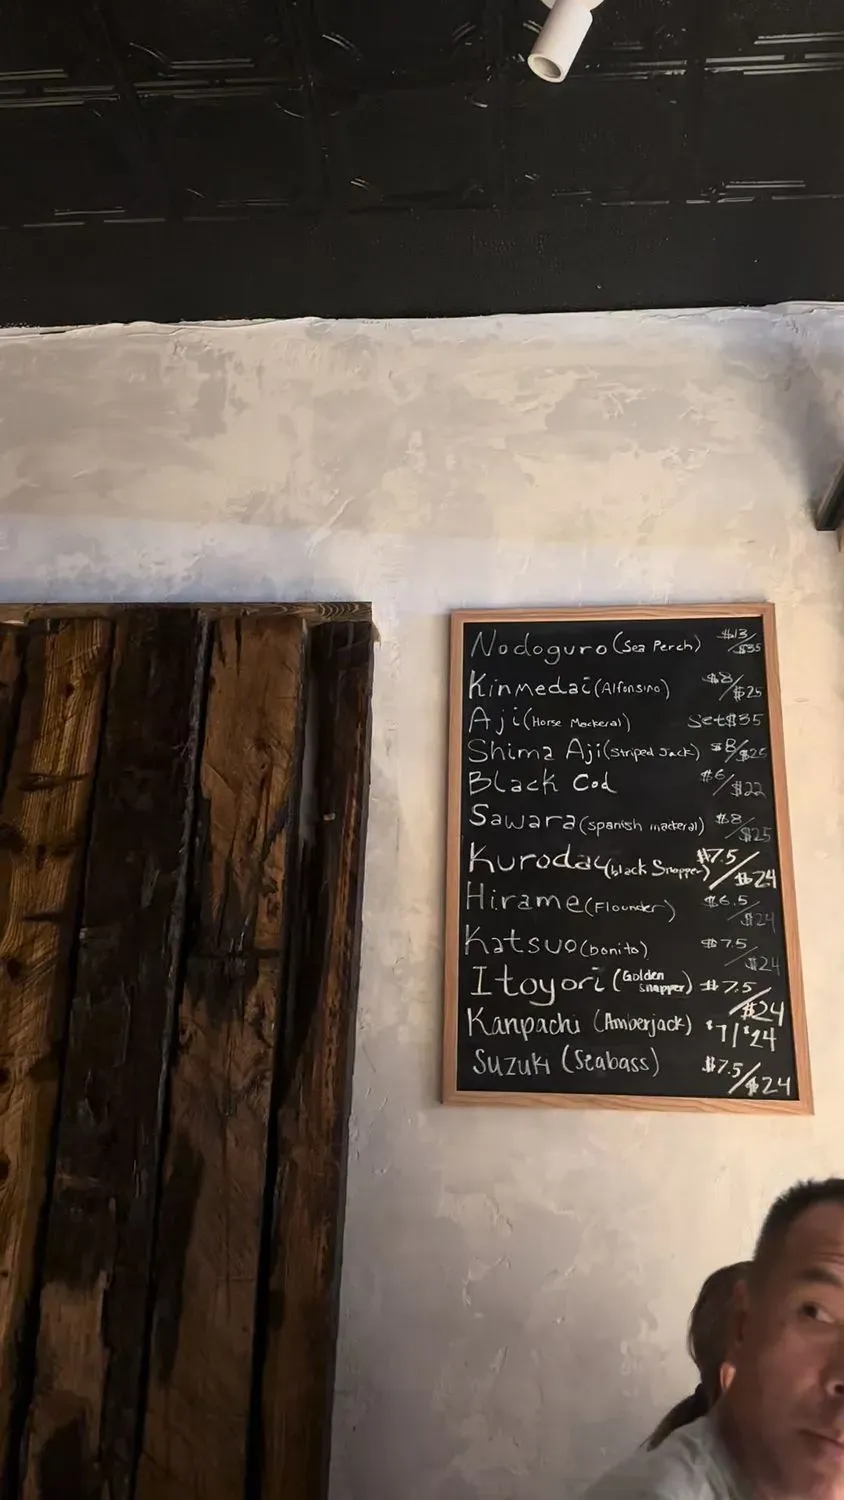 Nodoguro (Sea Perch) $13/$35
Kinmedai (Alfonsino) $8/$25
Aji (Horse Mackeral) Set $35
Shima Aji (Striped Jack) $8/$25
Black Cod $6/$22
Sawara (spanish mackeral) $8/$25
Kurodai (black Snapper) $7.5/$24
Hirame (Flounder) $6.5/$24
Katsuo (bonito) $7.5/$24
Itoyori (Golden snapper) $7.5/$24
Kanpachi (Amberjack) $7/$24
Suzuki (Seabass) $7.5/$24